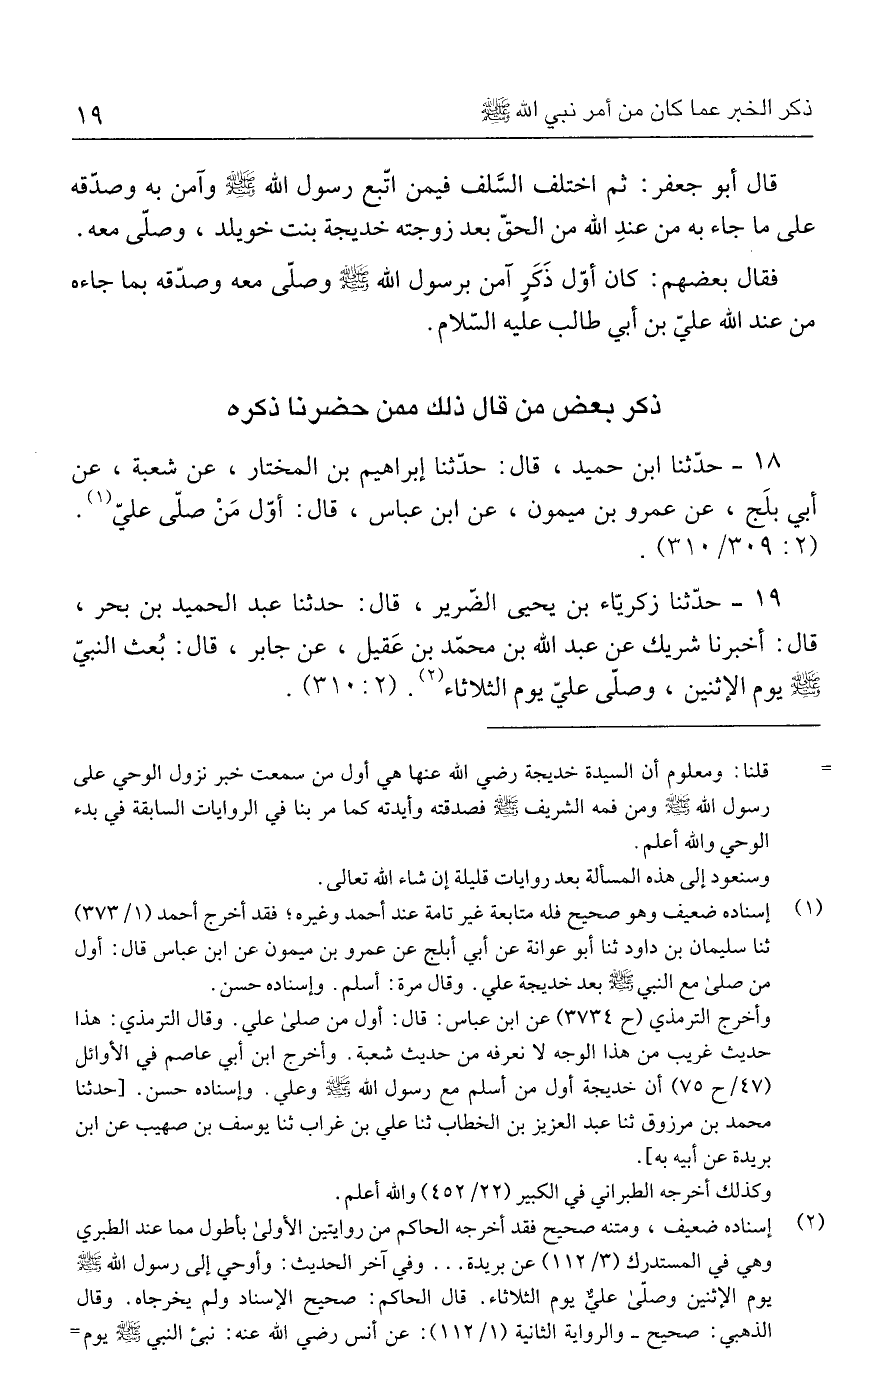 ذكر الخبر عما كان من أمر نبي الله ﷺ ١٩
قال أبو جعفر: ثم اختلف السَّلف فيمن اتّبع رسول الله ﷺ وآمن به وصدّقه
على ما جاء به من عندِ الله من الحقّ بعد زوجته خديجة بنت خويلد ، وصلّى معه.
فقال بعضهم: كان أوّل ذَكَرٍ آمن برسول الله ﷺ وصلّى معه وصدّقه بما جاءه
من عند الله عليّ بن أبي طالب عليه السّلام.
ذكر بعض من قال ذلك ممن حضرنا ذكره
١٨ - حدّثنا ابن حميد ، قال: حدّثنا إبراهيم بن المختار ، عن شعبة ، عن
أبي بلَج ، عن عمرو بن ميمون ، عن ابن عباس ، قال: أوّل مَنْ صلّى عليّ(١).
(٢: ٣٠٩/ ٣١٠) .
١٩ - حدّثنا زكريّاء بن يحيى الضّرير ، قال: حدثنا عبد الحميد بن بحر ،
قال: أخبرنا شريك عن عبد الله بن محمّد بن عَقيل ، عن جابر ، قال: بُعث النبيّ
ﷺ يوم الإثنين ، وصلّى عليّ يوم الثلاثاء(٢). (٢: ٣١٠) .
= قلنا: ومعلوم أن السيدة خديجة رضي الله عنها هي أول من سمعت خبر نزول الوحي على
رسول الله ﷺ ومن فمه الشريف ﷺ فصدقته وأيدته كما مر بنا في الروايات السابقة في بدء
الوحي والله أعلم.
وسنعود إلى هذه المسألة بعد روايات قليلة إن شاء الله تعالى.
(١) إسناده ضعيف وهو صحيح فله متابعة غير تامة عند أحمد وغيره؛ فقد أخرج أحمد (١/ ٣٧٣)
ثنا سليمان بن داود ثنا أبو عوانة عن أبي أبلج عن عمرو بن ميمون عن ابن عباس قال: أول
من صلىٰ مع النبي ﷺ بعد خديجة علي. وقال مرة: أسلم. وإسناده حسن.
وأخرج الترمذي (ح ٣٧٣٤) عن ابن عباس: قال: أول من صلىٰ علي. وقال الترمذي: هذا
حديث غريب من هذا الوجه لا نعرفه من حديث شعبة. وأخرج ابن أبي عاصم في الأوائل
(٤٧/ ح ٧٥) أن خديجة أول من أسلم مع رسول الله ﷺ وعلي. وإسناده حسن. [حدثنا
محمد بن مرزوق ثنا عبد العزيز بن الخطاب ثنا علي بن غراب ثنا يوسف بن صهيب عن ابن
بريدة عن أبيه به].
وكذلك أخرجه الطبراني في الكبير (٢٢/ ٤٥٢) والله أعلم.
(٢) إسناده ضعيف ، ومتنه صحيح فقد أخرجه الحاكم من روايتين الأولىٰ بأطول مما عند الطبري
وهي في المستدرك (٣/ ١١٢) عن بريدة... وفي آخر الحديث: وأوحي إلى رسول الله ﷺ
يوم الإثنين وصلّىٰ عليٌ يوم الثلاثاء. قال الحاكم: صحيح الإسناد ولم يخرجاه. وقال
الذهبي: صحيح - والرواية الثانية (١/ ١١٢): عن أنس رضي الله عنه: نبئ النبي ﷺ يوم=